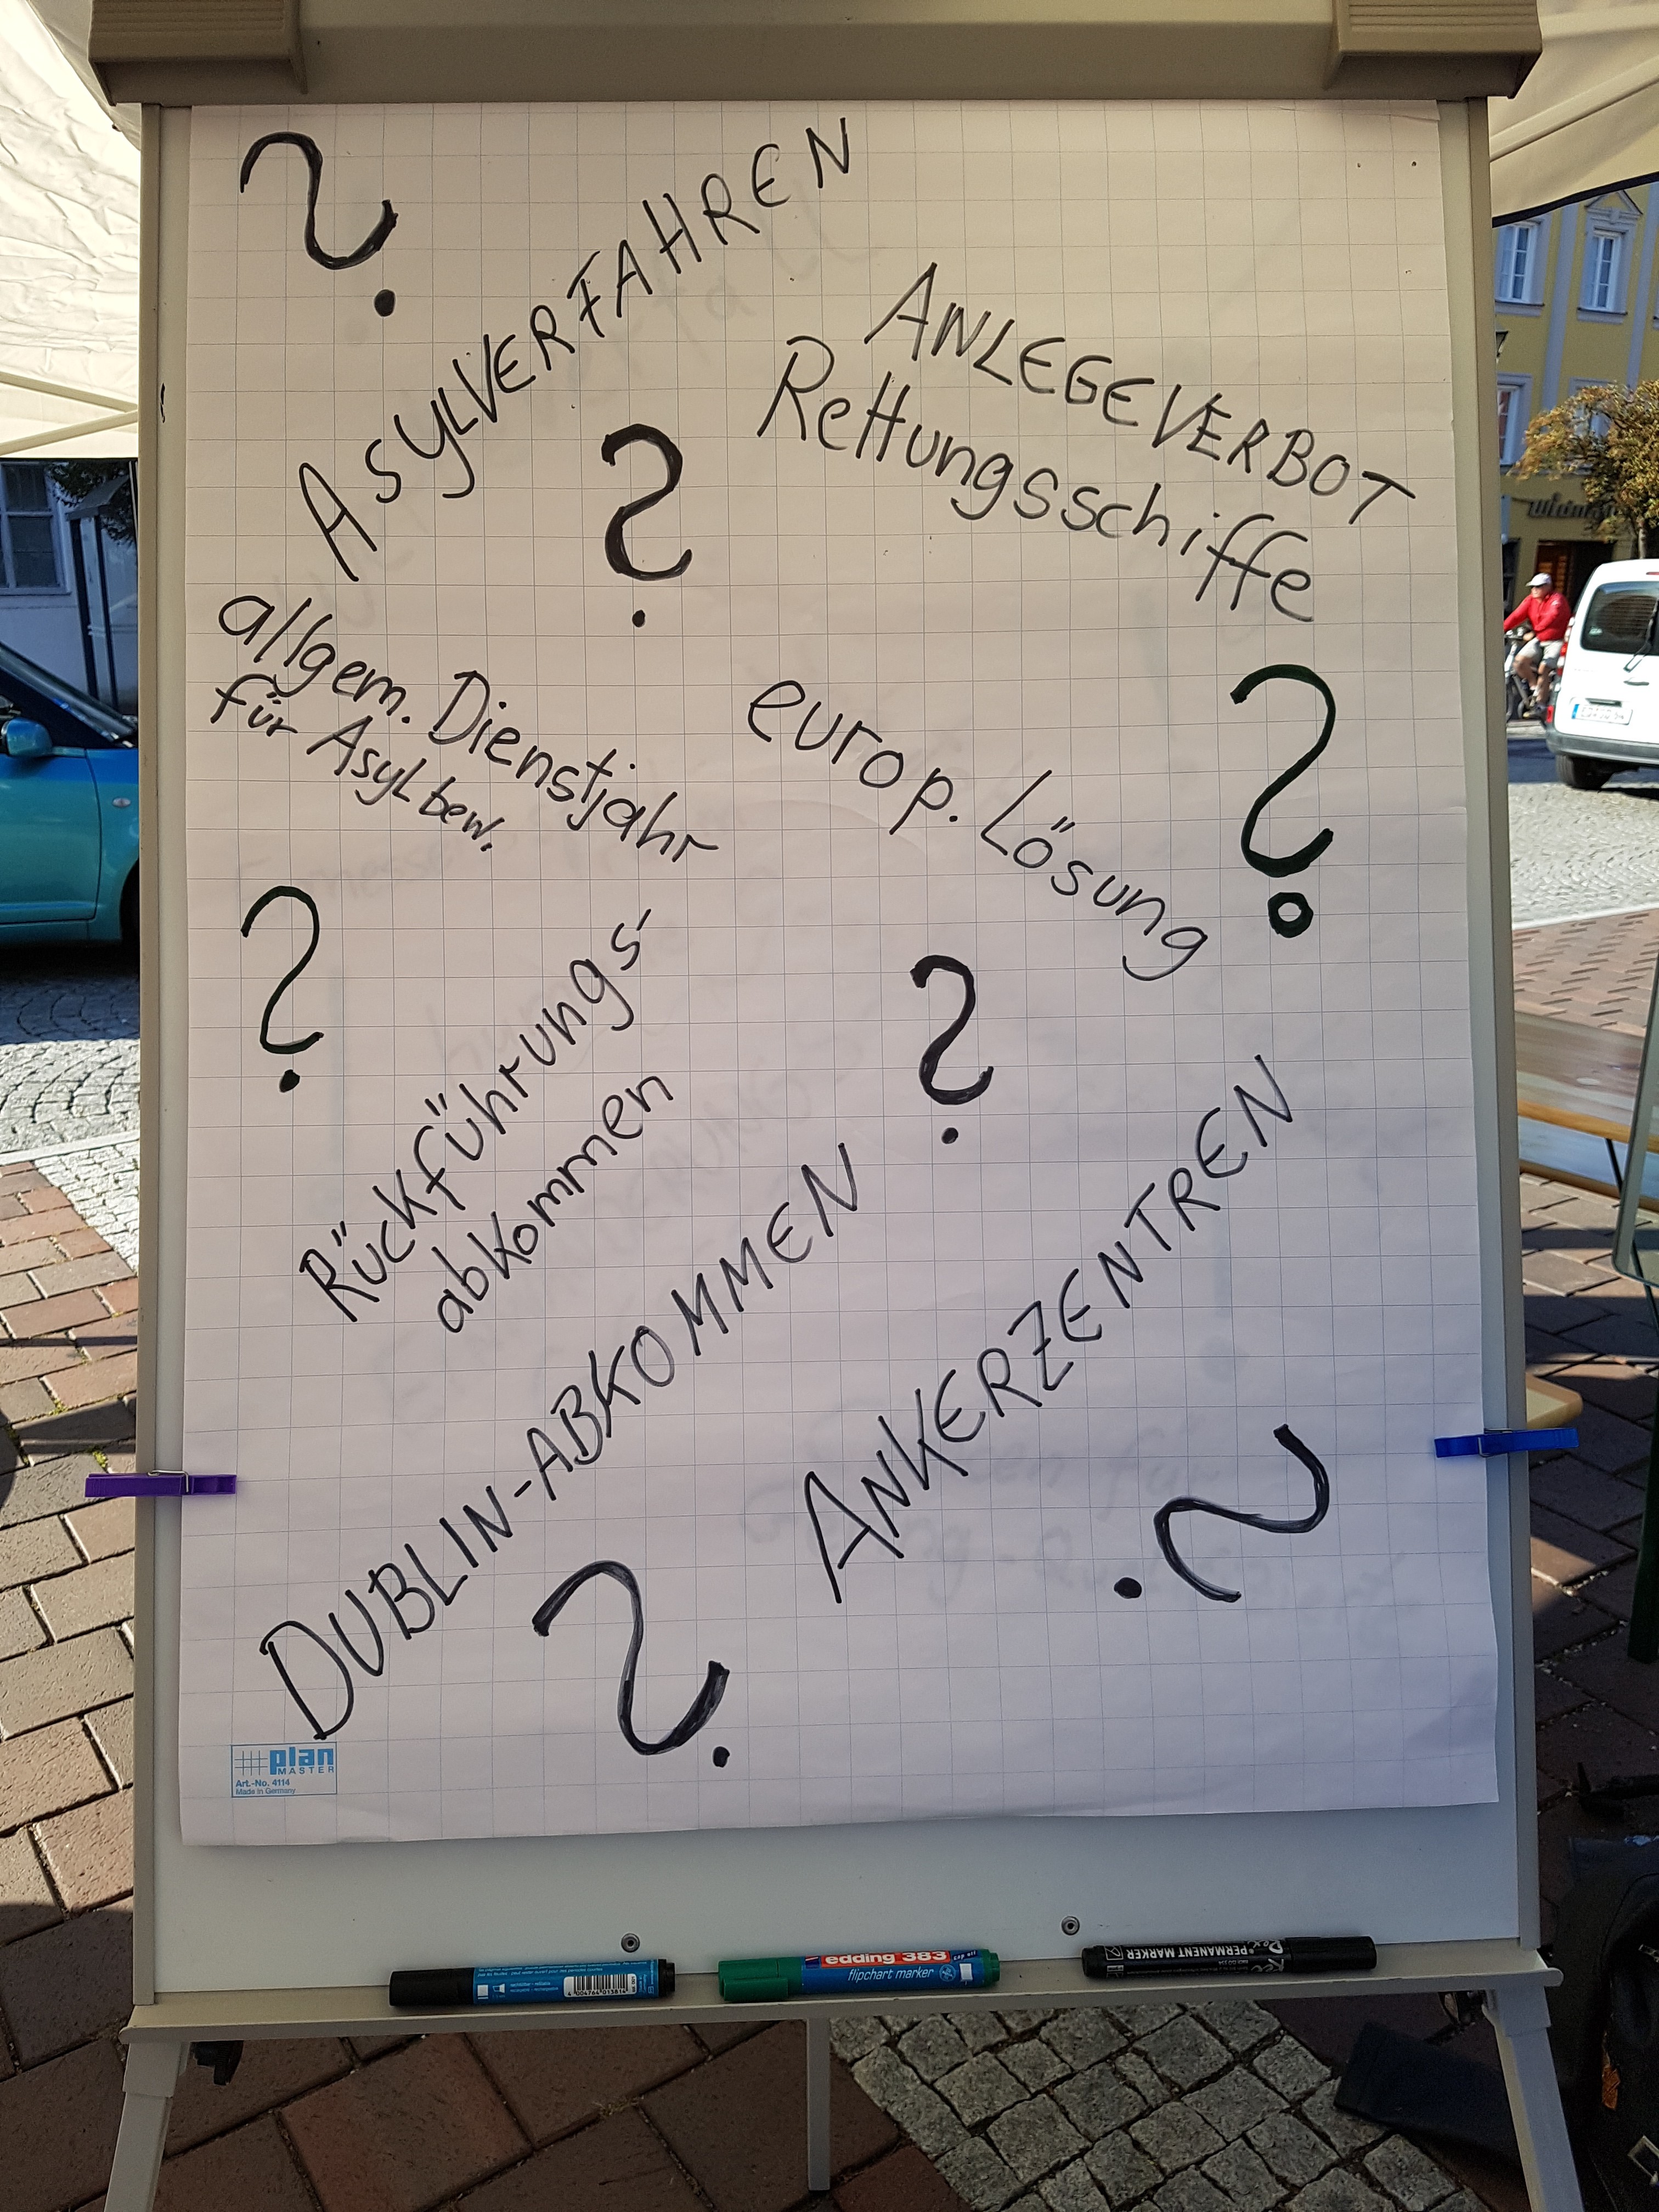 ?
ASYLVERFAHREN
ANLEGEVERBOT
Rettungsschiffe
?
allgem. Dienstjahr
für Asylbew.
europ. Lösung
?
?
Rückführungs-
abkommen
?
DUBLIN-ABKOMMEN
ANKERZENTREN
?
?
plan
MASTER
Art.-No. 4114
Made in Germany
edding 383
cap off
flipchart marker
PERMANENT MARKER
4 004764 013814